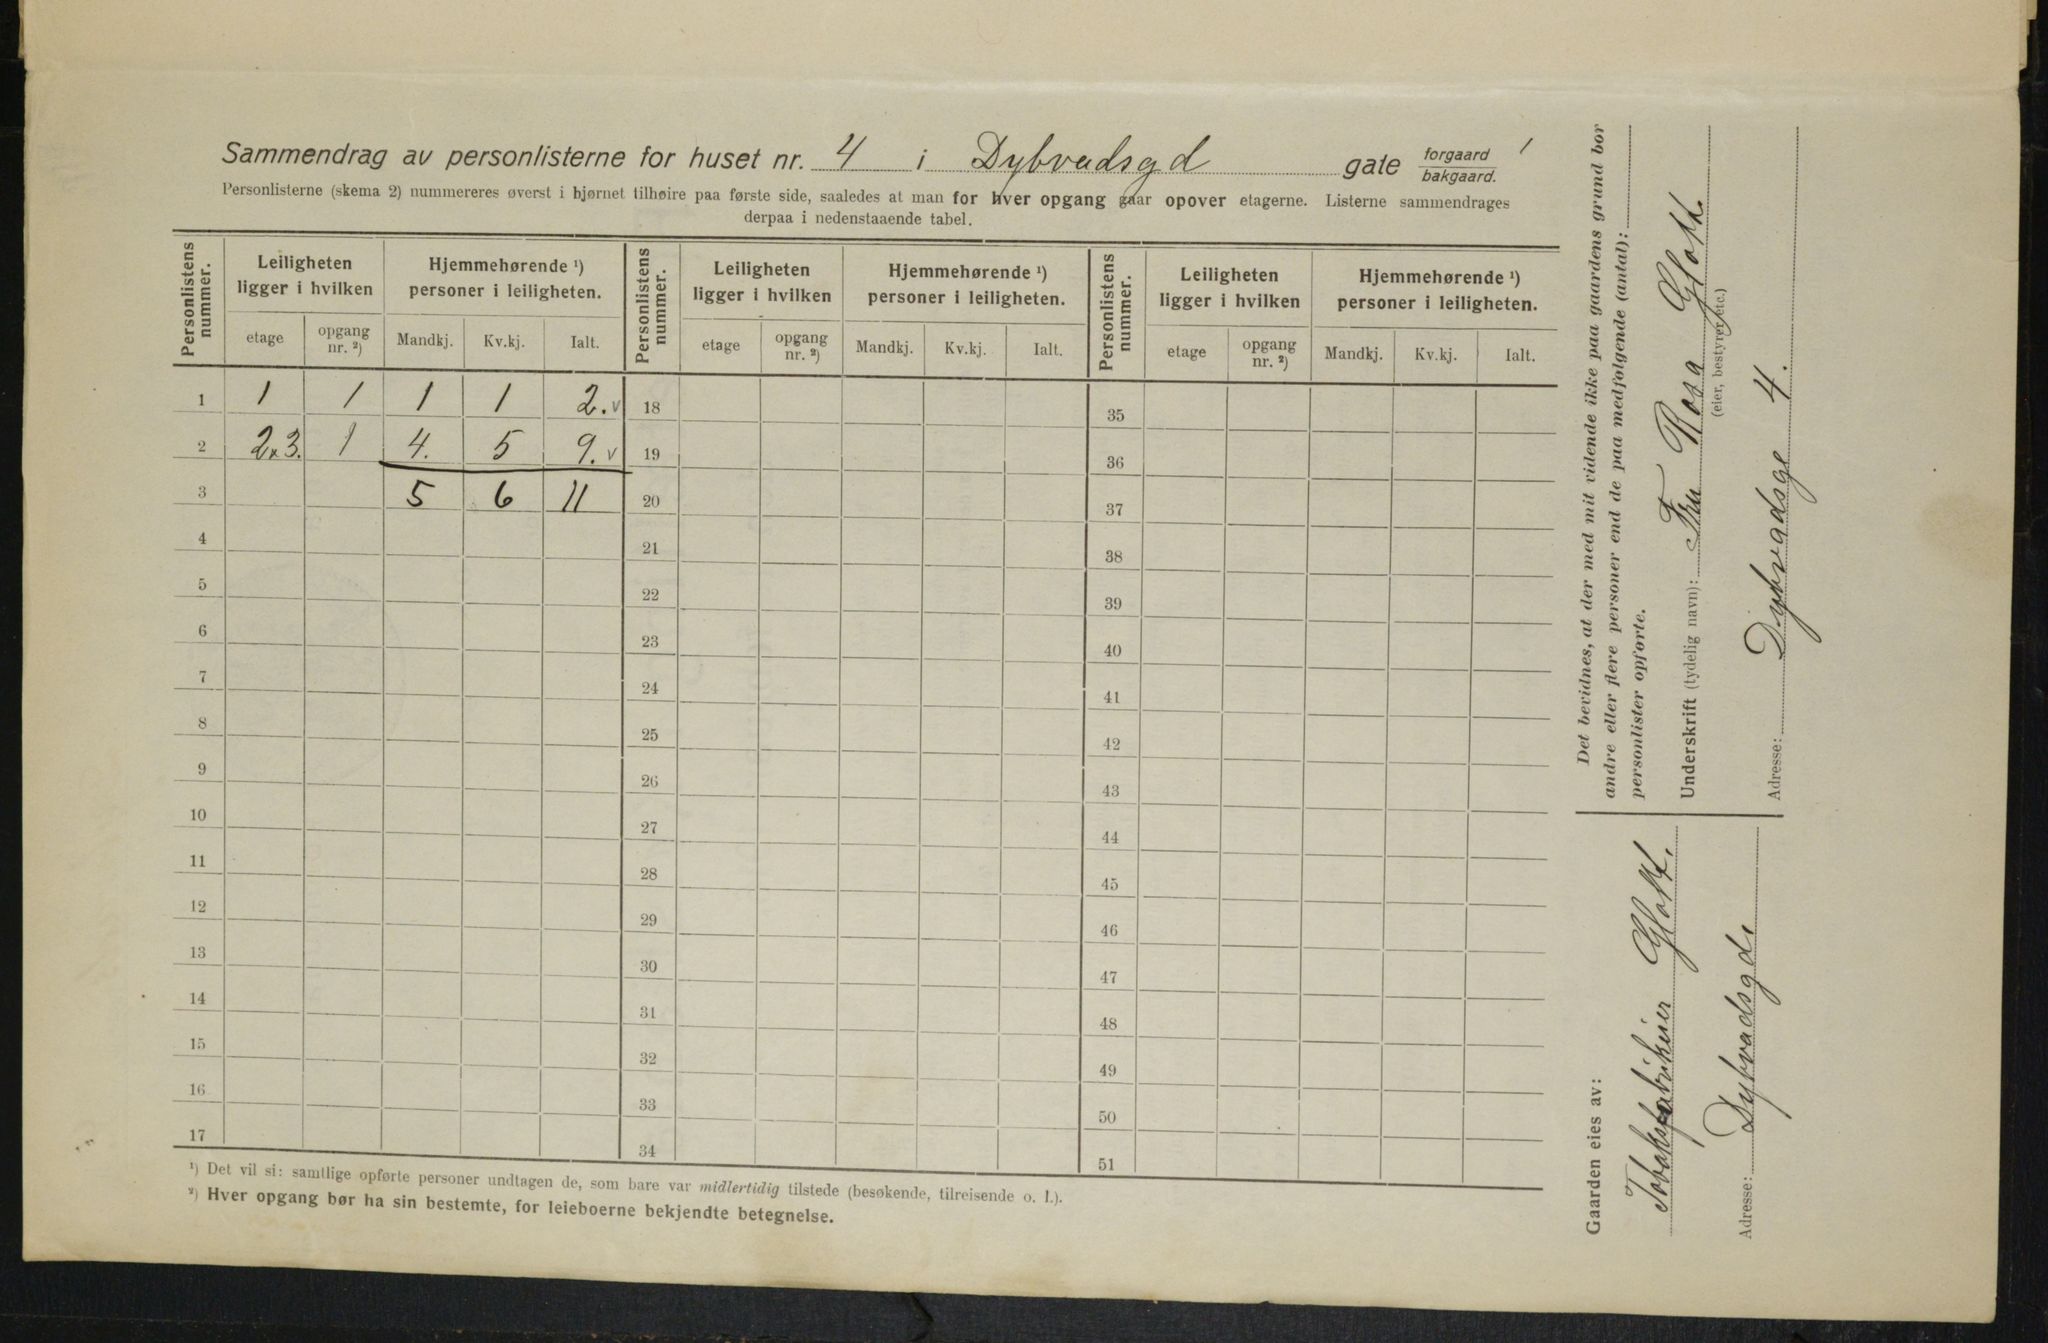 Sammendrag av personlisterne for huset nr. 4 i Dybvadsgd gate forgaard / bakgaard. 1
Personlisterne (skema 2) nummereres øverst i hjørnet tilhøire paa første side, saaledes at man for hver opgang gaar opover etagerne. Listerne sammendrages
derpaa i nedenstaaende tabel.
Personlistens nummer. Leiligheten ligger i hvilken Hjemmehørende ¹) personer i leiligheten. Personlistens nummer. Leiligheten ligger i hvilken Hjemmehørende ¹) personer i leiligheten. Personlistens nummer. Leiligheten ligger i hvilken Hjemmehørende ¹) personer i leiligheten.
etage opgang nr. ²) Mandkj. Kv.kj. Ialt. etage opgang nr. ²) Mandkj. Kv.kj. Ialt. etage opgang nr. ²) Mandkj. Kv.kj. Ialt.
1 1 1 1 1 2. v 18 35
2 2 3. 1 4. 5 9. v 19 36
3 5 6 11 20 37
4 21 38
5 22 39
6 23 40
7 24 41
8 25 42
9 26 43
10 27 44
11 28 45
12 29 46
13 30 47
14 31 48
15 32 49
16 33 50
17 34 51
¹) Det vil si: samtlige opførte personer undtagen de, som bare var midlertidig tilstede (besøkende, tilreisende o. l.).
²) Hver opgang bør ha sin bestemte, for leieboerne bekjendte betegnelse.
Det bevidnes, at der med mit vidende ikke paa gaardens grund bor
andre eller flere personer end de paa medfølgende (antal):
personlister opførte.
Underskrift (tydelig navn): Fru Rosa
(eier, bestyrer etc.)
Adresse: Dybvadsge 4.
Gaarden eies av:
Tobaksfabrikeier
Adresse: Dybvadsgd.